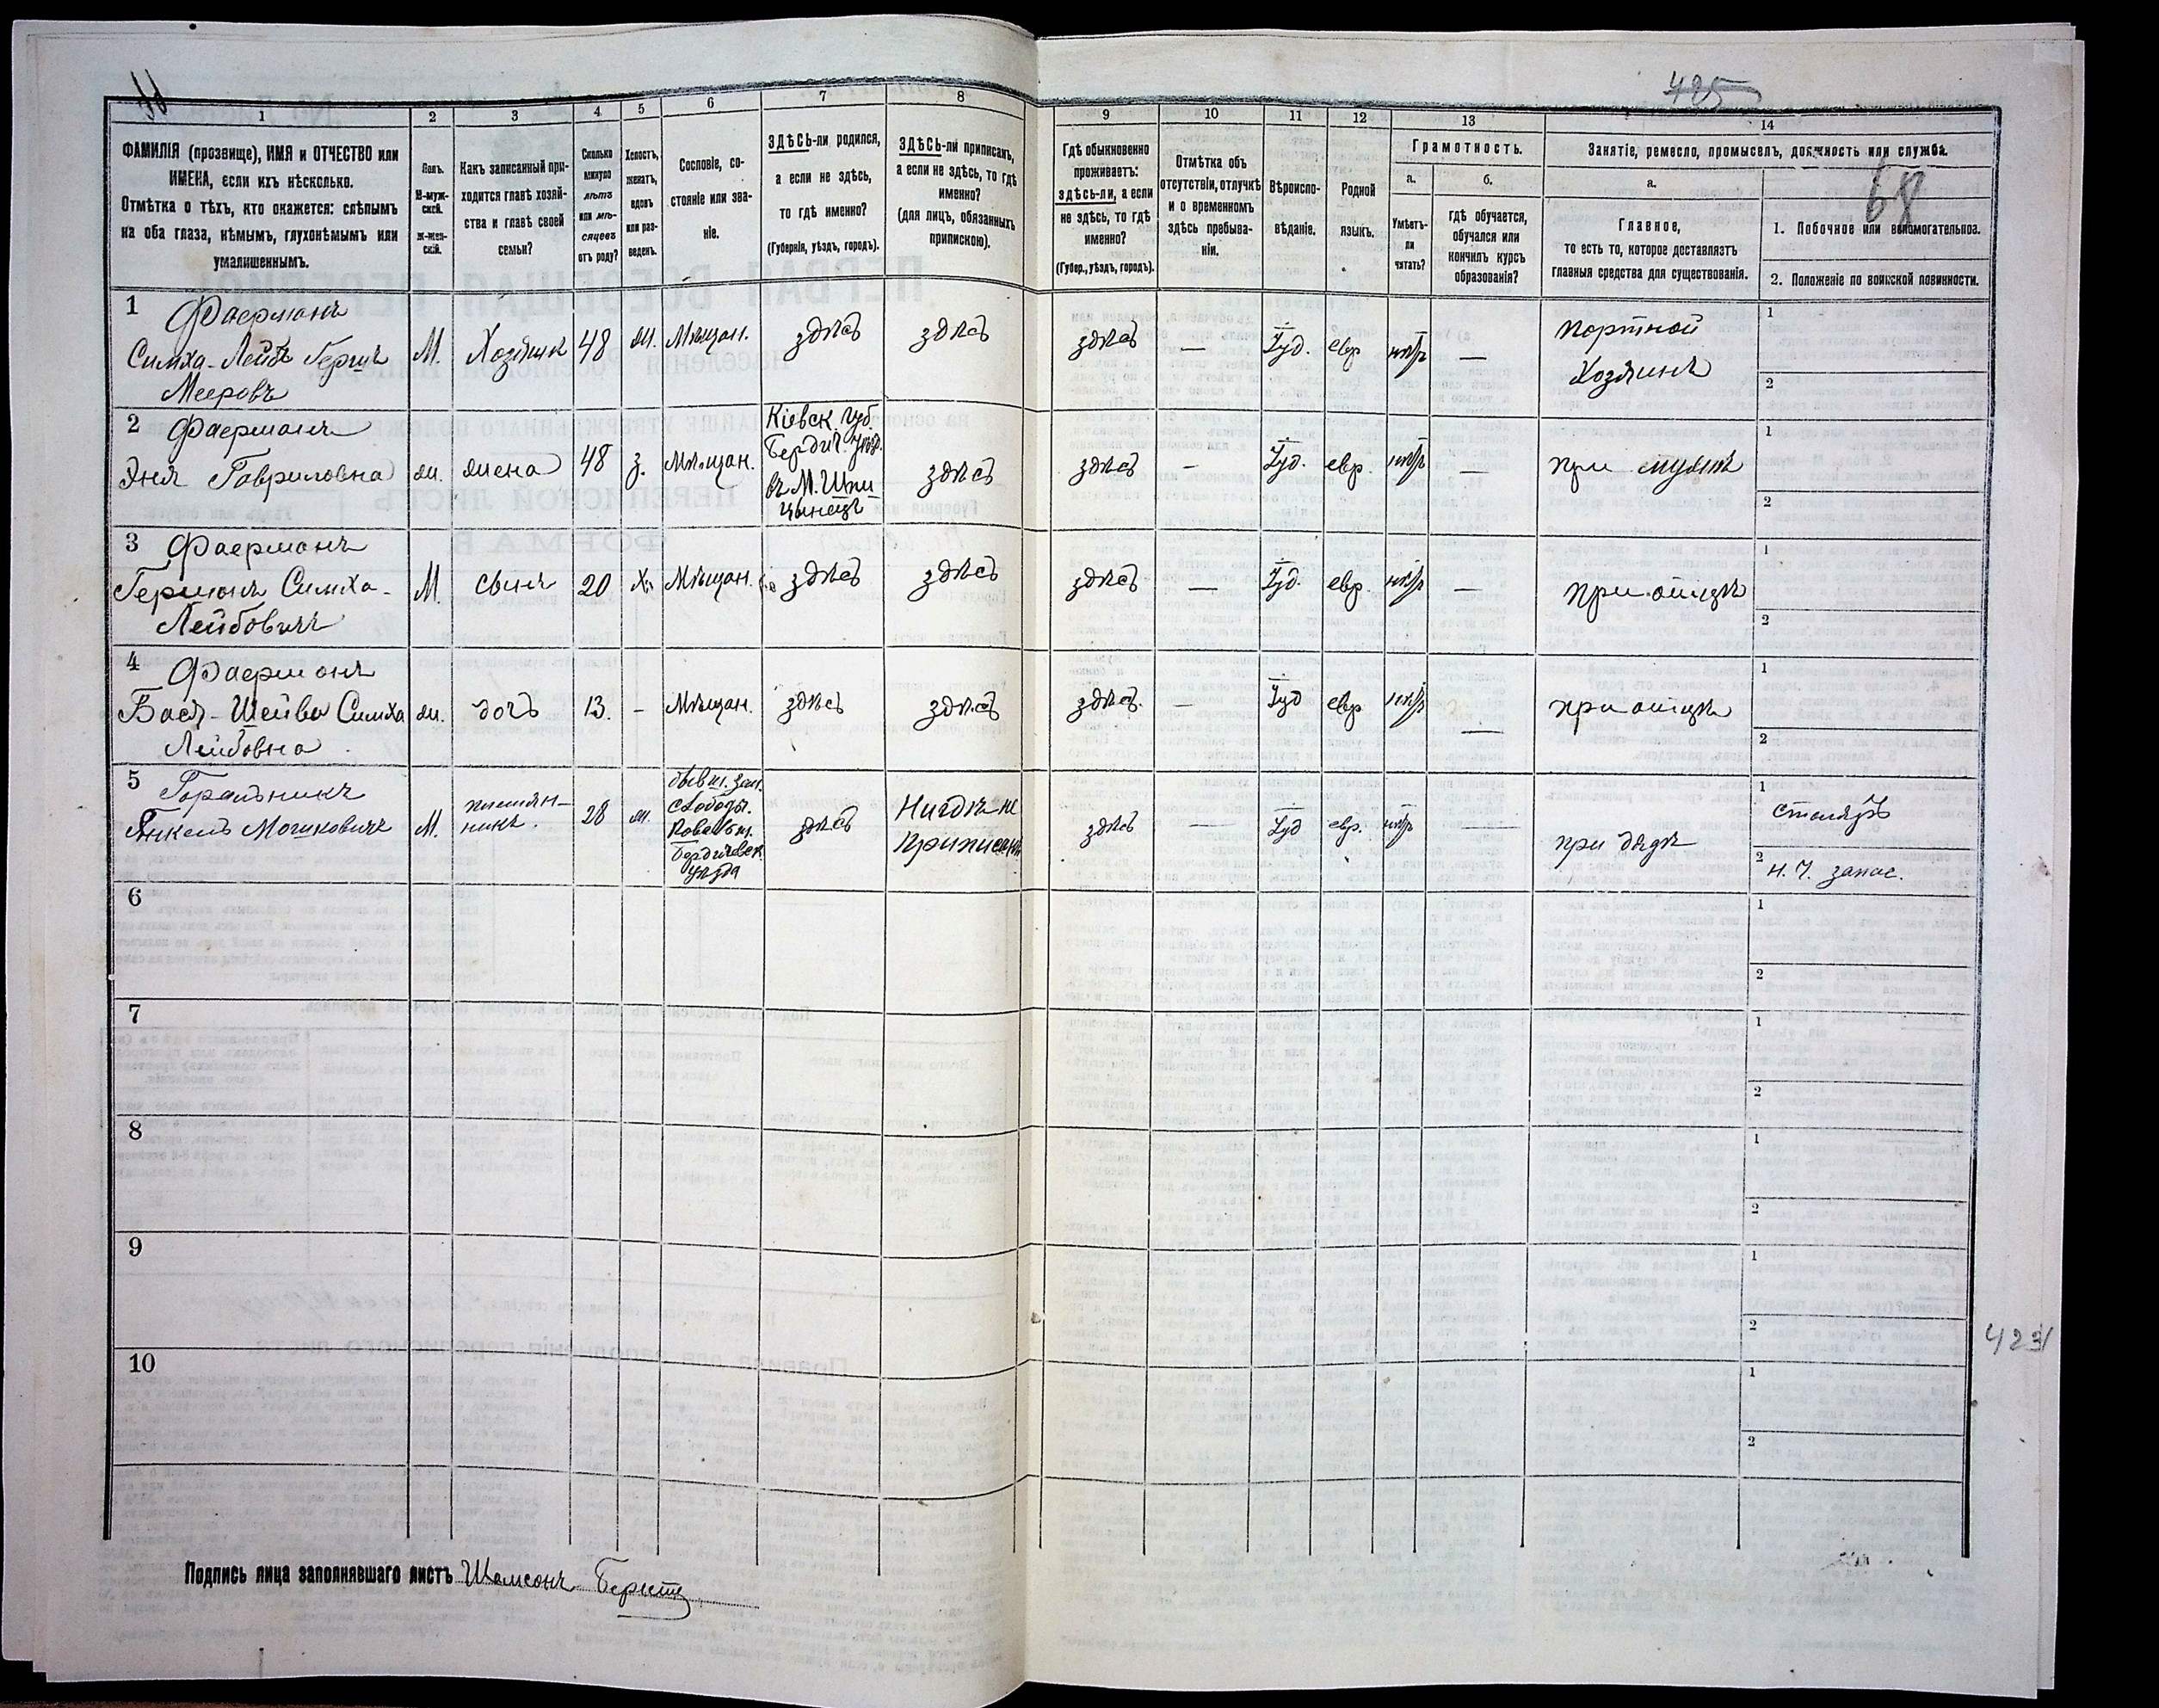 425
68
1
2
3
4
5
6
7
8
9
10
11
12
13
14
ФАМИЛІЯ (прозвище), ИМЯ и ОТЧЕСТВО или
ИМЕНА, если ихъ нѣсколько.
Отмѣтка о тѣхъ, кто окажется: слѣпымъ
на оба глаза, нѣмымъ, глухонѣмымъ или
умалишеннымъ.
Полъ.
М-муж-
ской.
Ж-жен-
скій.
Какъ записанный при-
ходится главѣ хозяй-
ства и главѣ своей
семьи?
Сколько
минуло
лѣтъ
или мѣ-
сяцевъ
отъ роду?
Холостъ,
женатъ,
вдовъ
или раз-
веденъ.
Сословіе, со-
стояніе или зва-
ніе.
ЗДѢСЬ-ли родился,
а если не здѣсь,
то гдѣ именно?
(Губернія, уѣздъ, городъ).
ЗДѢСЬ-ли приписанъ,
а если не здѣсь, то гдѣ
именно?
(для лицъ, обязанныхъ
припискою).
Гдѣ обыкновенно
проживаетъ:
здѣсь-ли, а если
не здѣсь, то гдѣ
именно?
(Губер., уѣздъ, городъ).
Отмѣтка объ
отсутствіи, отлучкѣ
и о временномъ
здѣсь пребыва-
ніи.
Вѣроиспо-
вѣданіе.
Родной
языкъ.
Грамотность.
а.
Умѣетъ-
ли
читать?
б.
Гдѣ обучается,
обучался или
кончилъ курсъ
образованія?
Занятіе, ремесло, промыселъ, должность или служба.
а.
Главное,
то есть то, которое доставляетъ
главныя средства для существованія.
1. Побочное или вспомогательное.
2. Положеніе по воинской повинности.
1 Фаерманъ
Симха-Лейбъ Герш
Мееровъ
М.
Хозяинъ
48
ж.
Мѣщан.
здѣсь
здѣсь
здѣсь
—
Іуд.
евр
—
портной
Хозяинъ
1
2
2 Фаерманъ
Эня Гавриловна
ж.
жена
48
з.
Мѣщан.
Кіевск. Губ.
Бердич. уѣзд.
въ М.
здѣсь
здѣсь
-
Іуд.
евр.
—
при мужѣ
1
2
3 Фаерманъ
Германъ Симха-
Лейбовичъ
М.
сынъ
20
Х.
Мѣщан.
здѣсь
здѣсь
здѣсь
—
Іуд.
евр.
—
при отцѣ
1
2
4 Фаерманъ
Бася-Шейва Симха
Лейбовна
ж.
дочь
13.
-
Мѣщан.
здѣсь
здѣсь
здѣсь.
—
Іуд
евр
—
при отцѣ
1
2
5 Горальникъ
Янкель Мошковичъ
М.
племян-
никъ.
28
ж.
бывш. зем.
свободы.
Бердичевск.
уѣзда
здѣсь
Нигдѣ не
Приписанъ
здѣсь
—
Іуд
евр.
—
при дядѣ
1 столяръ
2 н. ч. запас.
6
1
2
7
1
2
8
1
2
9
1
2
423
10
1
2
Подпись лица заполнявшаго листъ Шамсонъ